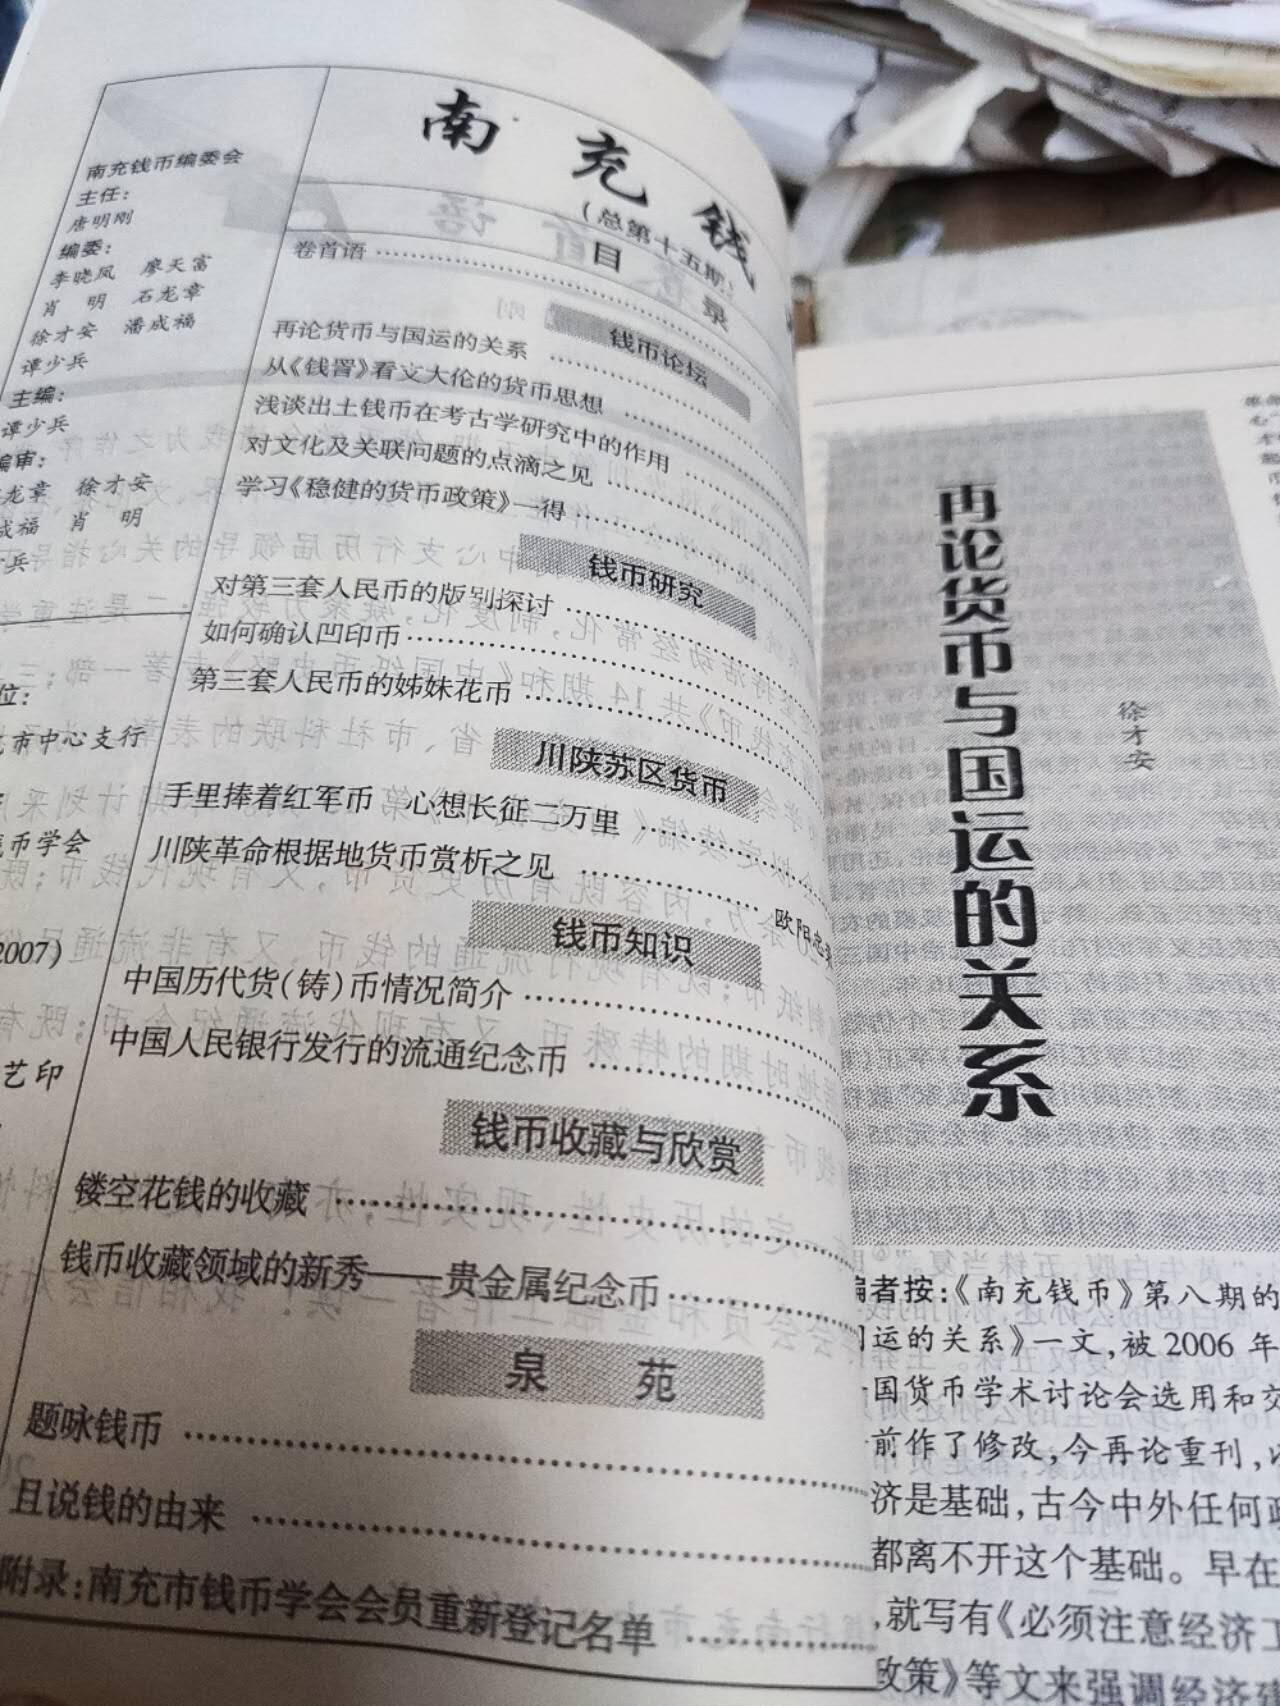 南充钱
(总第十五期)
目录
南充钱币编委会
主任:
唐明刚
编委:
李晓凤 廖天富
肖明 石龙章
徐才安 潘成福
谭少兵
主编:
谭少兵
编审:
龙章 徐才安
成福 肖明
兵
位:
市中心支行
币学会
2007)
艺印
卷首语
钱币论坛
再论货币与国运的关系
从《钱罟》看文大伦的货币思想
浅谈出土钱币在考古学研究中的作用
对文化及关联问题的点滴之见
学习《稳健的货币政策》一得
钱币研究
对第三套人民币的版别探讨
如何确认凹印币
第三套人民币的姊妹花币
川陕苏区货币
手里捧着红军币 心想长征二万里
川陕革命根据地货币赏析之见 欧阳忠
钱币知识
中国历代货(铸)币情况简介
中国人民银行发行的流通纪念币
钱币收藏与欣赏
镂空花钱的收藏
钱币收藏领域的新秀——贵金属纪念币
泉苑
题咏钱币
且说钱的由来
附录:南充市钱币学会会员重新登记名单
再论货币与国运的关系
徐才安
编者按:《南充钱币》第八期的
国运的关系》一文,被2006年
国货币学术讨论会选用和交
前作了修改,今再论重刊,
济是基础,古今中外任何政
都离不开这个基础。早在
,就写有《必须注意经济工
政策》等文来强调经济建